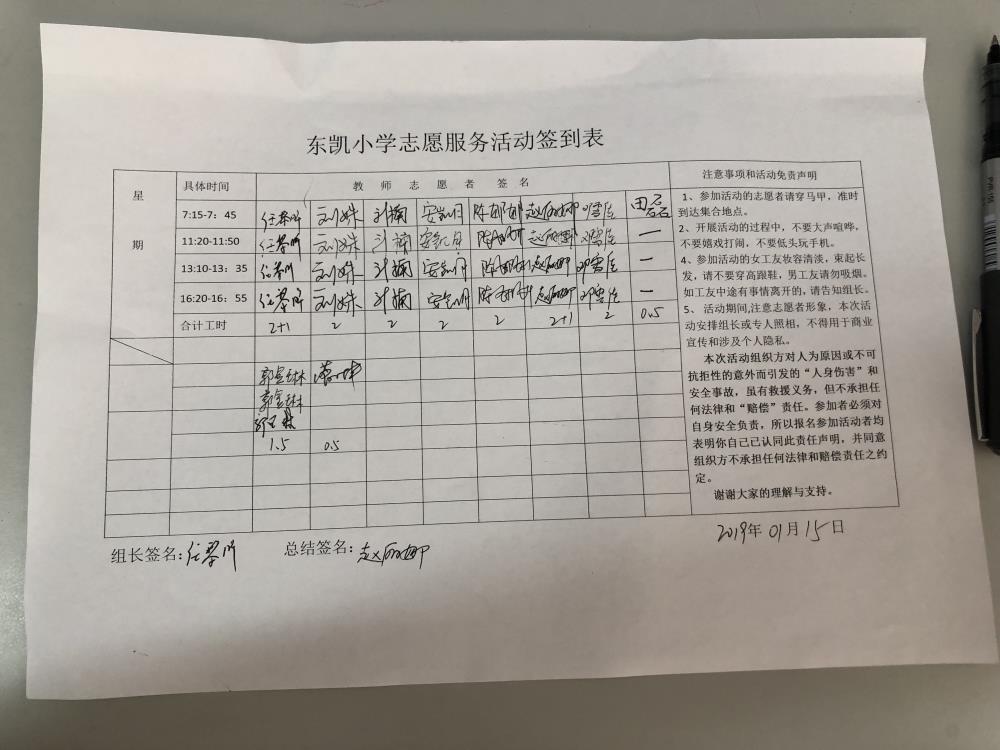 东凯小学志愿服务活动签到表
星期 具体时间 教师志愿者签名 注意事项和活动免责声明
7:15-7：45 任琴昕 刘姝 陈娜娜 赵丽娜 邓雪莲 田磊
11:20-11:50 任琴昕 刘姝 陈娜娜 赵丽娜 —
13:10-13：35 任琴昕 刘姝 陈娜娜 赵丽娜 —
16:20-16：55 任琴昕 刘姝 陈娜娜 赵丽娜 —
合计工时 2+1 2 2 2 2 2+1 2 0.5
1.5 0.5
1、参加活动的志愿者请穿马甲，准时
到达集合地点。
2、开展活动的过程中，不要大声喧哗，
不要嬉戏打闹，不要低头玩手机。
4、参加活动的女工友妆容清淡，束起长
发，请不要穿高跟鞋，男工友请勿吸烟。
如工友中途有事情离开的，请告知组长。
5、 活动期间,注意志愿者形象，本次活
动安排组长或专人照相，不得用于商业
宣传和涉及个人隐私。
本次活动组织方对人为原因或不可
抗拒性的意外而引发的“人身伤害”和
安全事故，虽有救援义务，但不承担任
何法律和“赔偿”责任。参加者必须对
自身安全负责，所以报名参加活动者均
表明你自己已认同此责任声明，并同意
组织方不承担任何法律和赔偿责任之约
定。
谢谢大家的理解与支持。
2019年01月15日
组长签名:任琴昕 总结签名:赵丽娜